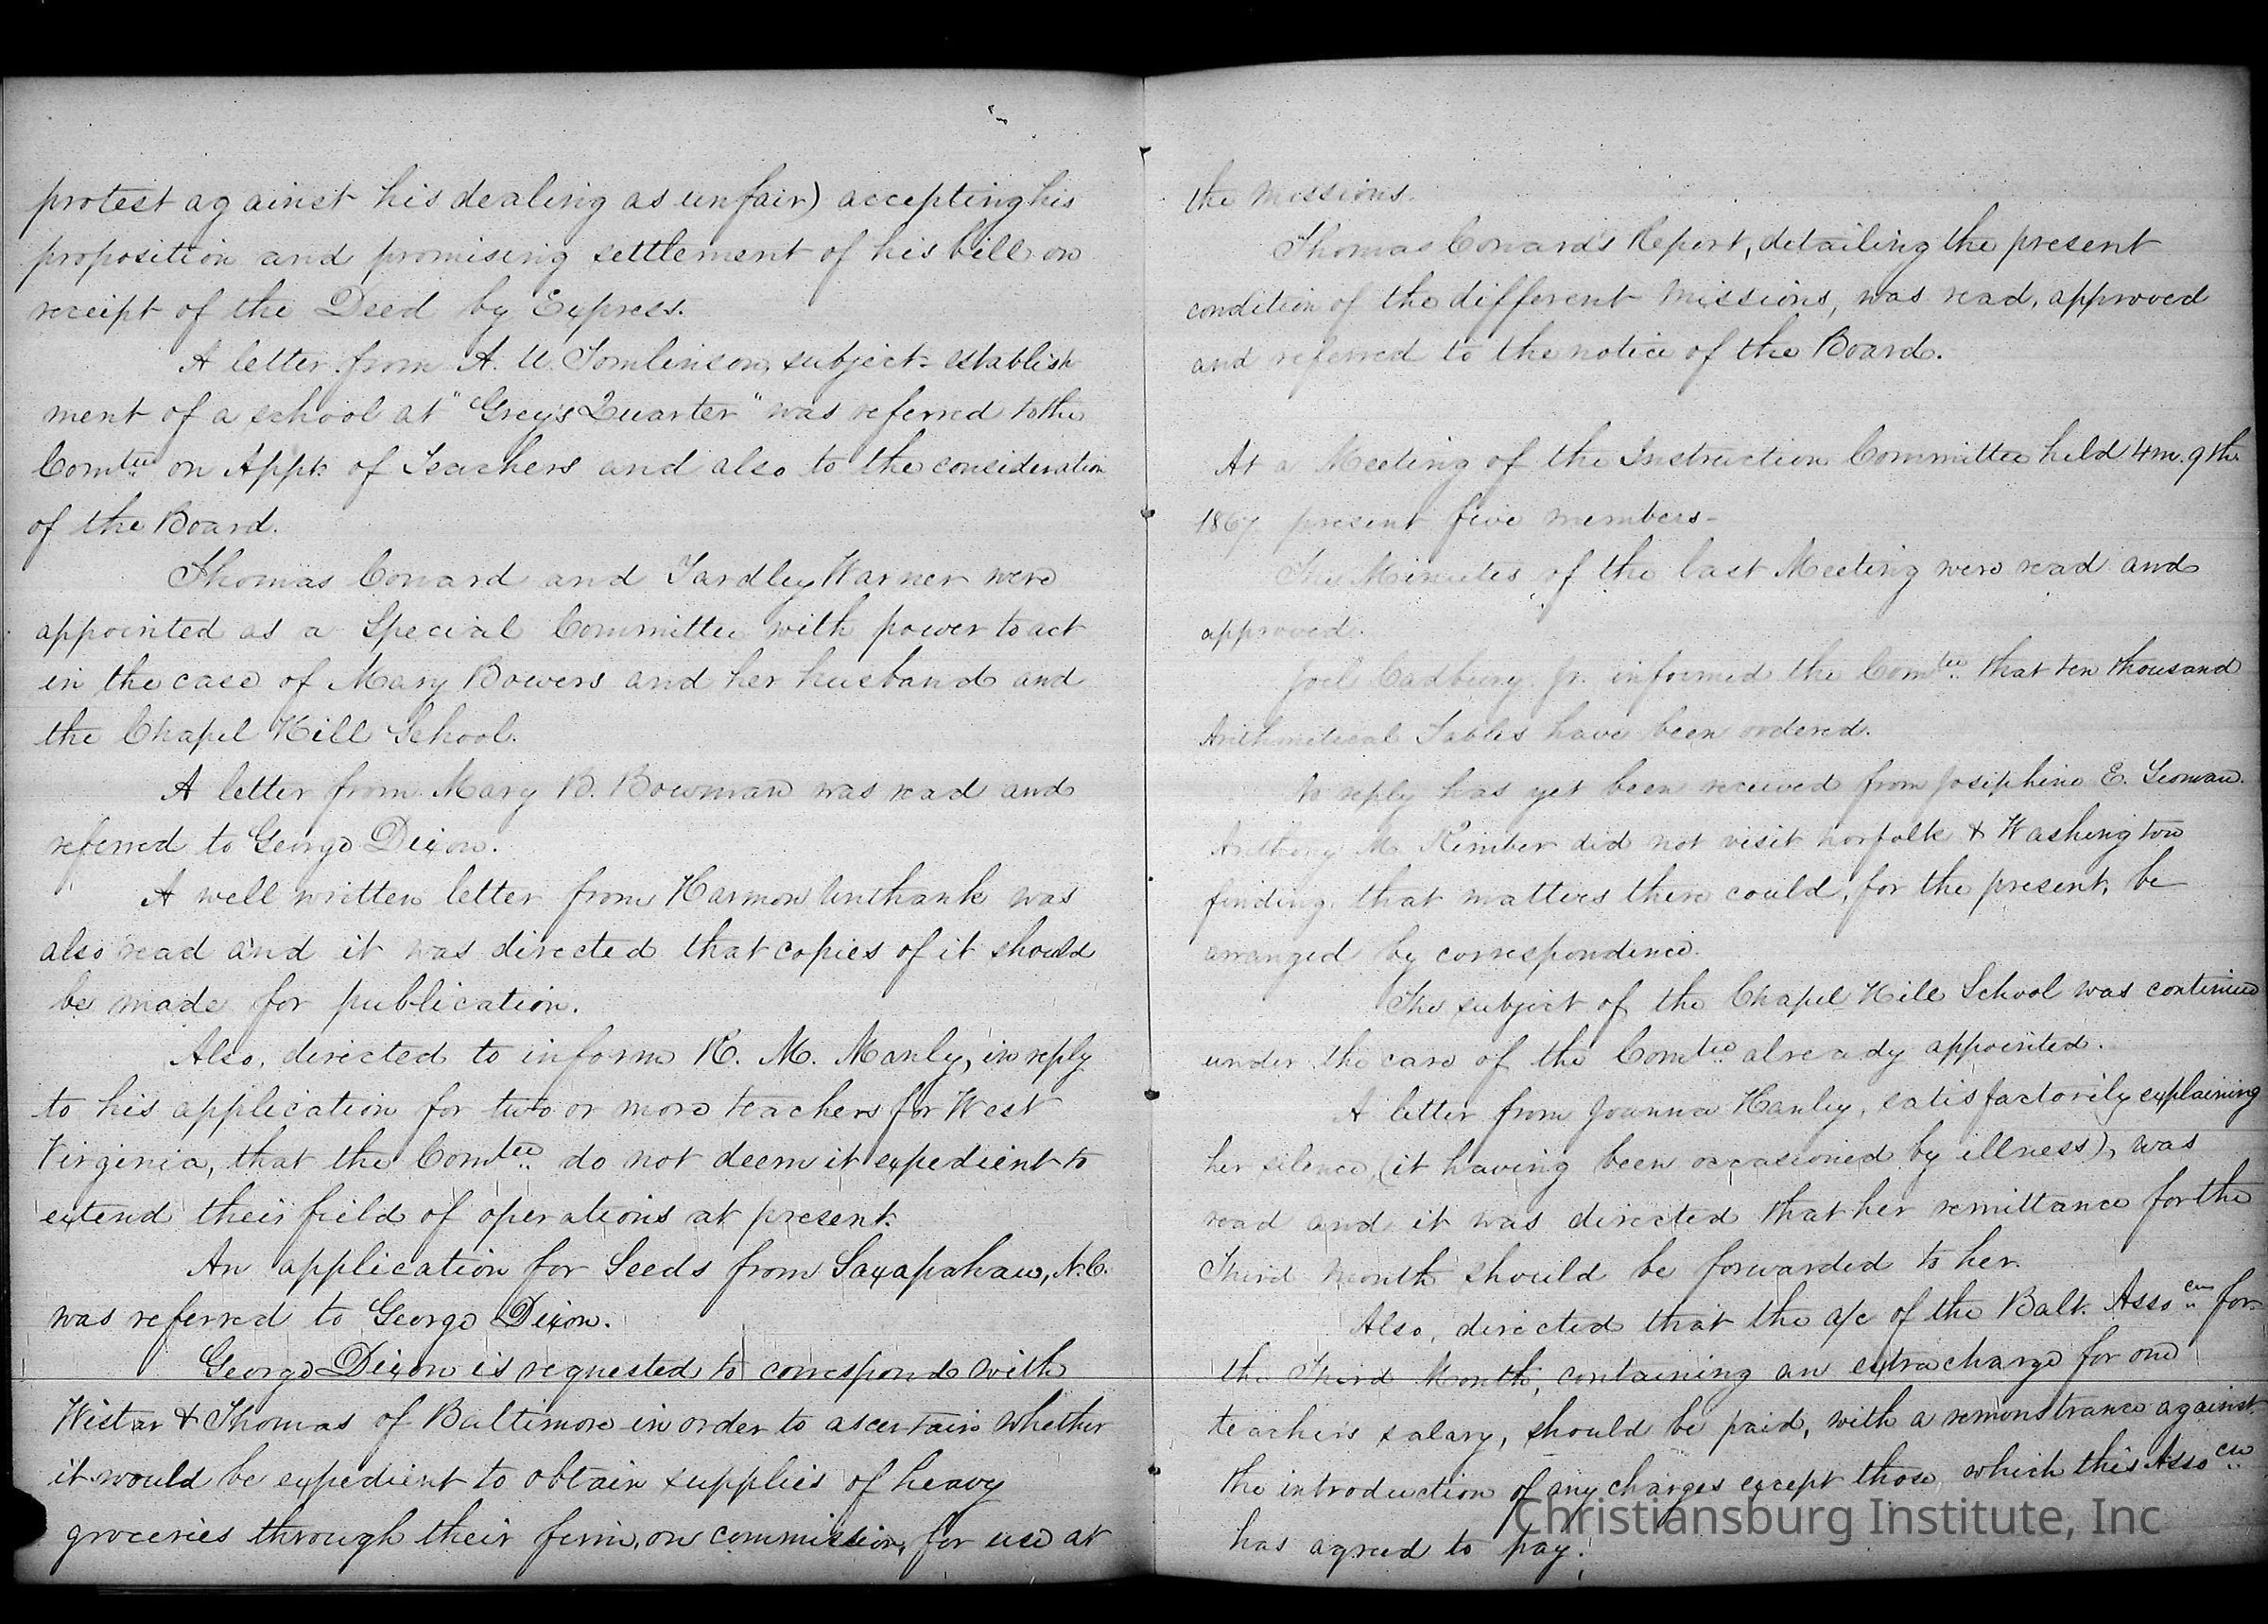 protest against his dealing as unfair) accepting his
proposition and promising settlement of his bill on
receipt of the Deed by Express.
A letter from A. U. Tomlinson, subject- establish
ment of a school at "Grey's Quarter" was referred to the
Comtee on Appt. of Teachers and also to the consideration
of the Board.
Thomas Conard and Yardley Warner were
appointed as a Special Committee with power to act
in the case of Mary Bowers and her husband and
the Chapel Hill School.
A letter from Mary B. Bowman was read and
referred to George Dixon.
A well written letter from Harmon Unthank was
also read and it was directed that copies of it should
be made for publication.
Also, directed to inform R. M. Manly, in reply
to his application for two or more teachers for West
Virginia, that the Comtee do not deem it expedient to
extend their field of operations at present.
An application for Seeds from Saxapahaw, N.C.
was referred to George Dixon.
George Dixon is requested to correspond with
Wistar & Thomas of Baltimore in order to ascertain whether
it would be expedient to obtain supplies of heavy
groceries through their firm, on commission, for use at
the missions.
Thomas Conard's Report, detailing the present
condition of the different missions, was read, approved
and referred to the notice of the Board.
At a Meeting of the Instruction Committee held 4m. 9th
1867 present five members-
The Minutes of the last Meeting were read and
approved.
Joel Cadbury Jr. informed the Comtee that ten thousand
Arithmetical Tables have been ordered.
No reply has yet been received from Josephine E.
Anthony M. Kimber did not visit Norfolk & Washington
finding that matters there could, for the present, be
arranged by correspondence.
The subject of the Chapel Hill School was continued
under the care of the Comtee already appointed.
A letter from Joanna Hanley, satisfactorily explaining
her silence, (it having been occasioned by illness), was
read and it was directed that her remittance for the
Third Month should be forwarded to her.
Also, directed that the a/c of the Balt. Assocn for
the Third Month, containing an extra charge for one
teacher's salary, should be paid, with a remonstrance against
the introduction of any charges except those which this Assocn
has agreed to pay.
Christiansburg Institute, Inc